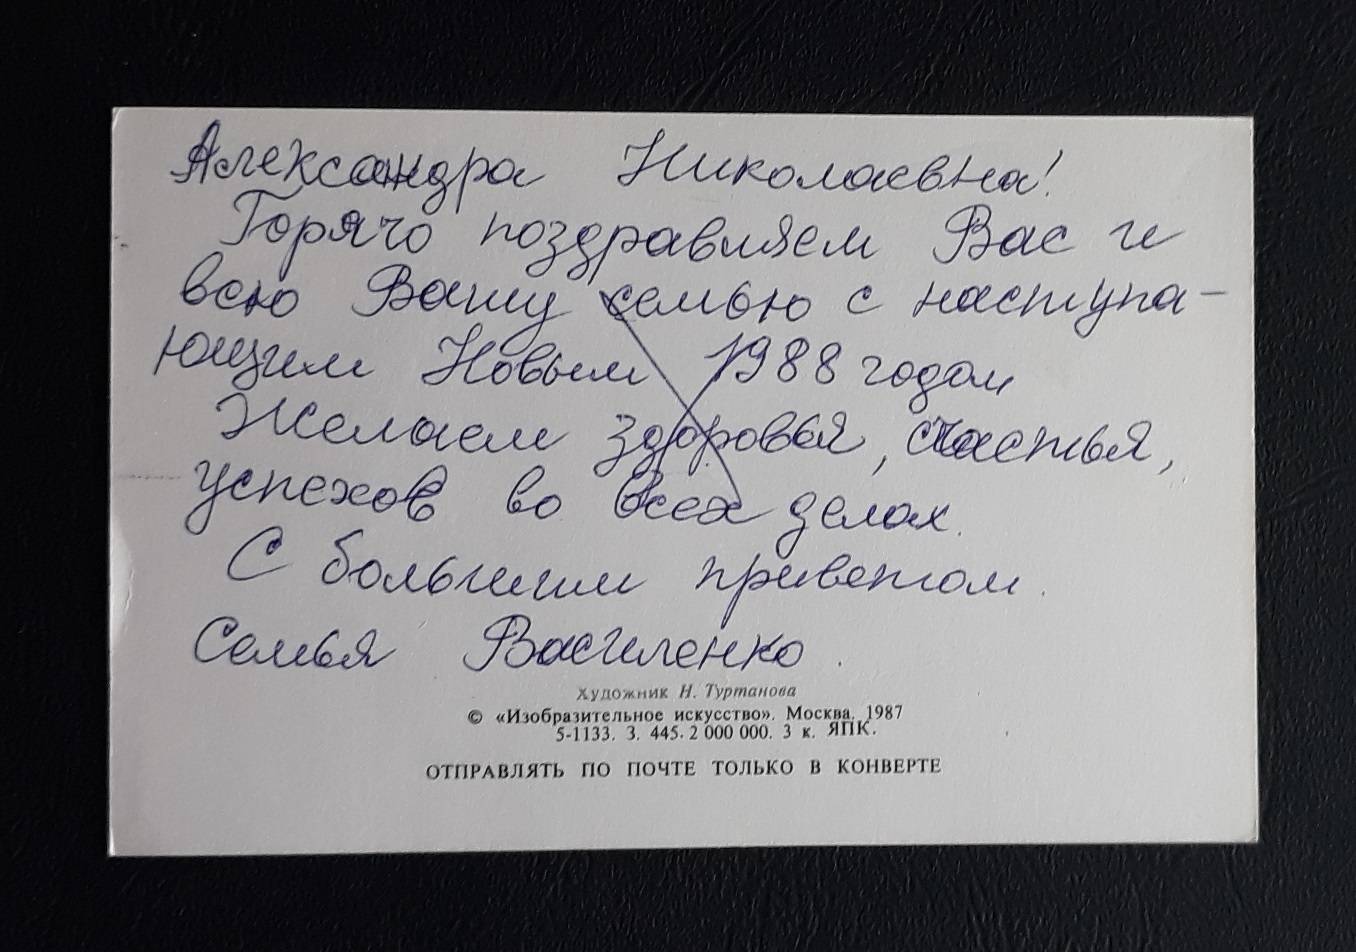 Александра Николаевна!
Горячо поздравляем Вас и
всю Вашу семью с наступа-
ющим Новым 1988 годом
Желаем здоровья, счастья,
успехов во всех делах.
С большим приветом.
Семья Василенко.
Художник Н. Туртанова
© «Изобразительное искусство». Москва. 1987
5-1133. З. 445. 2 000 000. 3 к. ЯПК.
ОТПРАВЛЯТЬ ПО ПОЧТЕ ТОЛЬКО В КОНВЕРТЕ